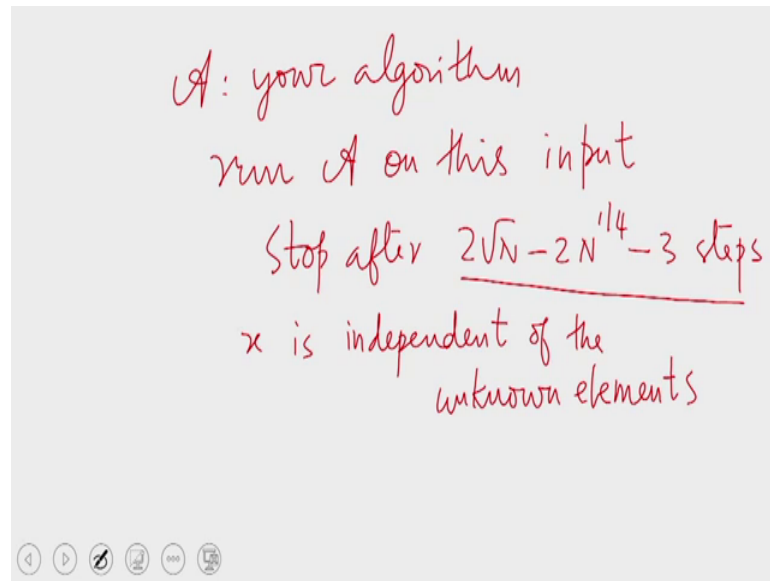 A: your algorithm
run A on this input
Stop after 2√N - 2N^1/4 - 3 steps
x is independent of the
unknown elements